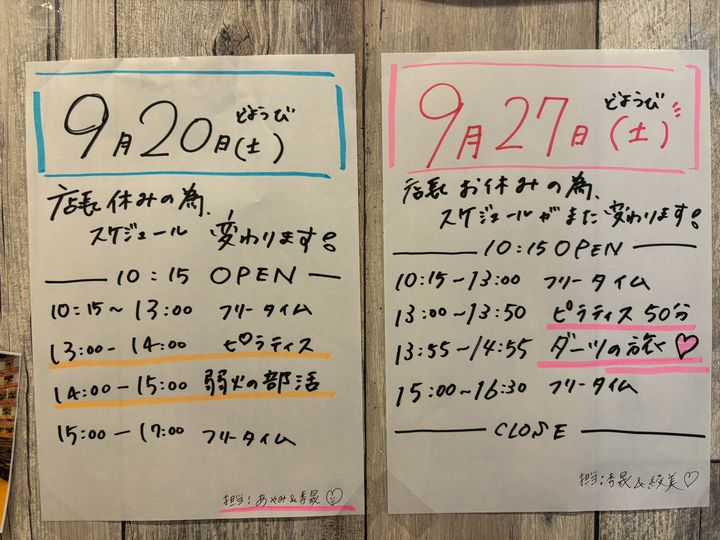 どようび
9月20日(土)
店長休みの為、
スケジュール 変わります!
10:15 OPEN
10:15〜13:00 フリータイム
13:00-14:00 ピラティス
14:00-15:00 弱火の部活
15:00-17:00 フリータイム
担当:あやみ&季晟♡
どようび
9月27日(土)
店長お休みの為、
スケジュールがまた変わります!
10:15 OPEN
10:15〜13:00 フリータイム
13:00〜13:50 ピラティス50分
13:55〜14:55 ダーツの旅♡
15:00〜16:30 フリータイム
CLOSE
担当:季晟&絞美♡